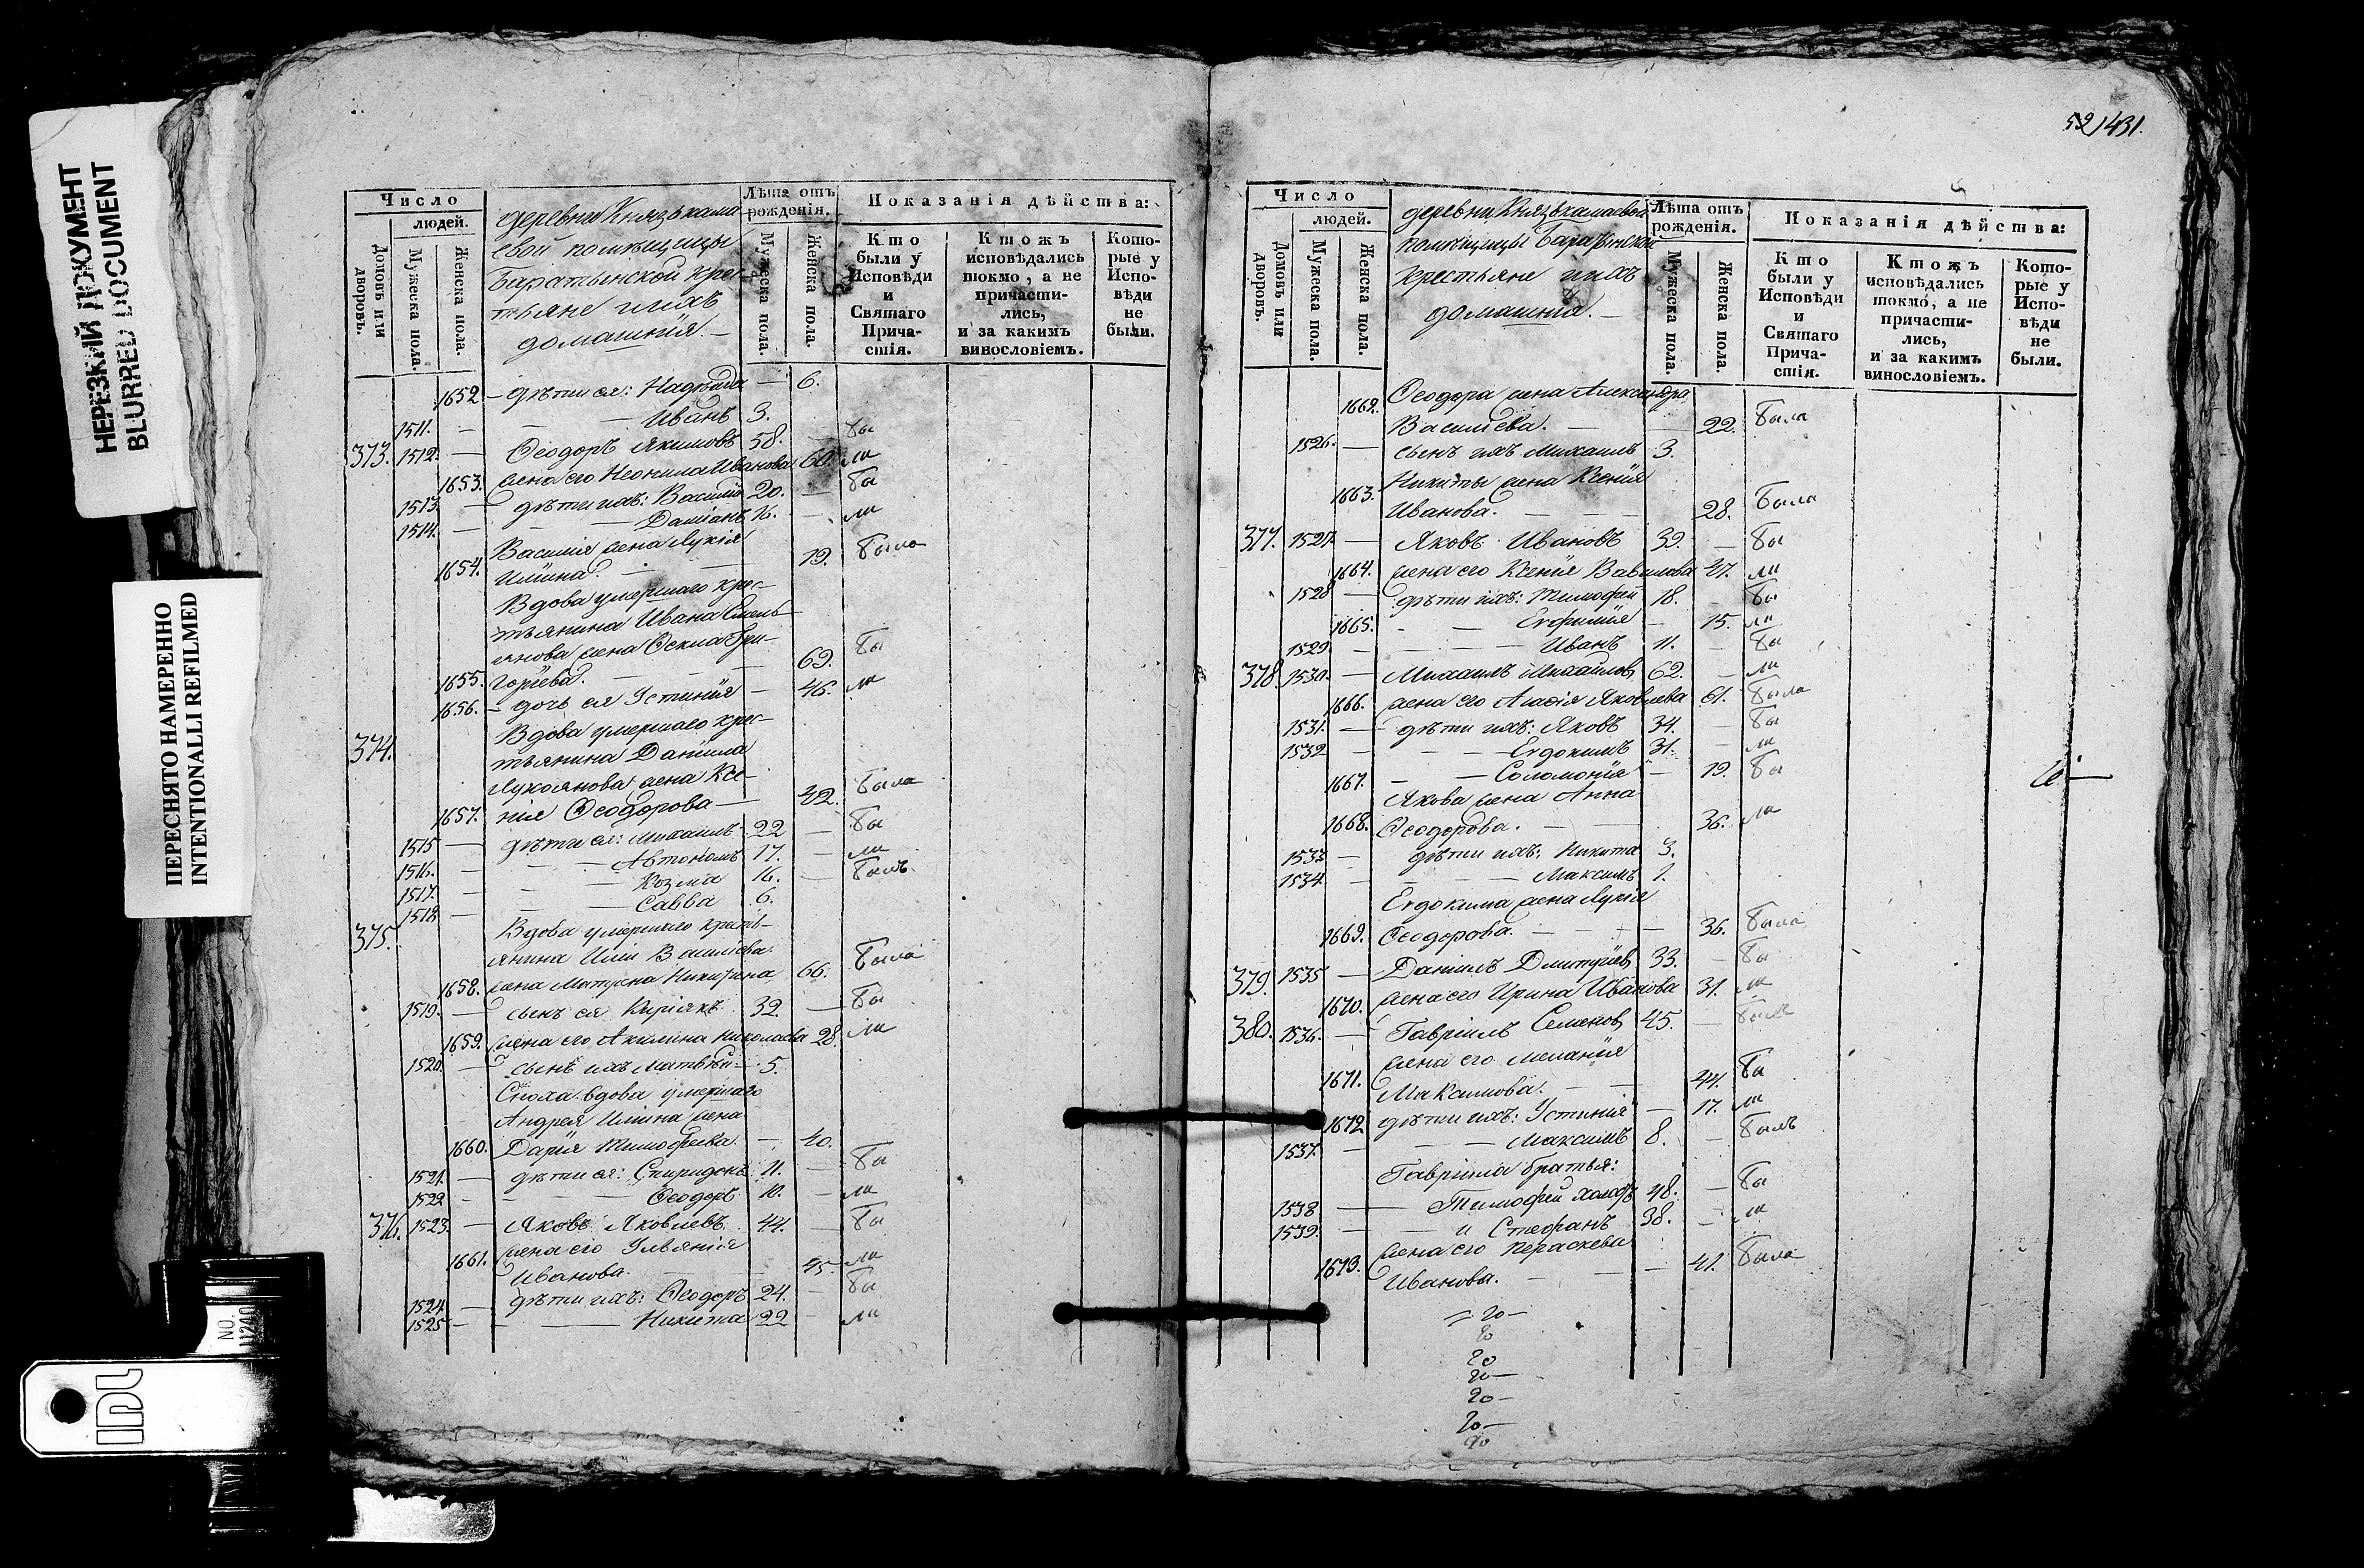 НЕРЕЗКИЙ ДОКУМЕНТ
BLURRED DOCUMENT
ПЕРЕСНЯТО НАМЕРЕННО
INTENTIONALLI REFILMED
Число
людей.
Домовъ или дворовъ.
Мужеска пола.
Женска пола.
деревни Князькама
евой помѣщицы
Баратынской крес
тьяне и ихъ
домашнія.
Лѣта отъ рожденія.
Мужеска пола.
Женска пола.
Показанія дѣйства:
Кто были у Исповѣди и Святаго Прича-стія.
Ктожъ исповѣдались токмо, а не причасти-лись, и за какимъ винословіемъ.
Кото-рые у Испо-вѣди не были.
1652. – дѣти ея: Надежда – 6.
1511. – – – Иванъ 3.
373. 1512. – Ѳеодоръ Якимовъ 58. – бы
1653. жена его Неонила Иванова 60. ли
1513. – дѣти ихъ: Василій 20. – бы
1514. – – – Даміанъ 16. – ли
Василія жена Лукія
1654. Ильина. – – 19. была
Вдова умершаго крес-
тьянина Ивана Емель
янова жена Ѳекла Гри-
1655. горьева. – – – 69. бы
1656. – дочь ея Устинія – 46. ли
374. Вдова умершаго крес-
тьянина Даніила
Лукоянова жена Ксе-
1657. нія Ѳеодорова – 42. была
1515 – дѣти ея: Михаилъ 22 – бы
1516. – – – Автономъ 17. – ли
1517. – – – Козма 16. – былъ
1518 – – – Савва 6.
375. Вдова умершаго кресть-
янина Ильи Васильева
1658. жена Матрона Никитина 66. была
1519. – сынъ ея Киріякъ 32. – бы
1659. жена его Акилина Николаева 28. ли
1520. – сынъ ихъ Матвѣй – 5.
Сноха вдова умершаго
Андрея Ильина жена
1660. Дарія Тимофеева – 40.
1521. – дѣти ея: Спиридонъ 11. – бы
1522 – – – Ѳеодоръ 10. – ли
376. 1523. – Яковъ Яковлевъ 44. – бы
1661. жена его Ульянія
Иванова. – – 45. ли
1524. – дѣти ихъ: Ѳеодоръ 24. – бы
1525 – – – Никита 22 – ли
52 431.
Число
людей.
Домовъ или дворовъ.
Мужеска пола.
Женска пола.
деревни Князькамаевой
помѣщицы Баратынской
крестьяне и ихъ
домашнія. –
Лѣта отъ рожденія.
Мужеска пола.
Женска пола.
Показанія дѣйства:
Кто были у Исповѣди и Святаго Прича-стія.
Ктожъ исповѣдались токмо, а не причасти-лись, и за какимъ винословіемъ.
Кото-рые у Испо-вѣди не были.
1662. Ѳеодора жена Александра
Васильева. – – 22. была
1526. – сынъ ихъ Михаилъ 3.
1663. Никиты жена Ксенія
Иванова. – – – 28. была
377. 1527. – Яковъ Ивановъ 39. – бы
1664. жена его Ксенія Вавилова 47. ли
1528 – дѣти ихъ: Тимофей 18. – бы
1665. – – Евфимія – 15. ли
1529 – – – Иванъ 11. – бы
378. 1530. – Михаилъ Михайлов 62. – ли
1666. жена его Агафія Яковлева 61. была
1531. – дѣти ихъ: Яковъ 34. – бы
1532 – – – Евдокимъ 31. – ли
1667. – – Соломонія – 19. бы
Якова жена Анна
1668. Ѳеодорова. – – 36. ли
1533 – дѣти ихъ: Никита 3.
1534 – – – Максимъ 1.
Евдокима жена Лукія
1669. Ѳеодорова. – – – 36. была
379. 1535 – Даніилъ Дмитріев 33. – бы
1670. жена его Ирина Иванова 31. ли
380. 1536. – Гавріилъ Семенов 45. – былъ
жена его Меланія
1671. Максимова. – – 44. бы
1672 дѣти ихъ: Устинія – 17. ли
1537. – – – Максимъ 8. – былъ
Гавріила братья:
1538 – Тимофей холостъ 48. – бы
1539. – и Стефанъ 38. – ли
жена его Параскева
1673. Иванова. – – – 41. была
20 –
20
20
20 –
20 –
20 –
20
NO. 1240